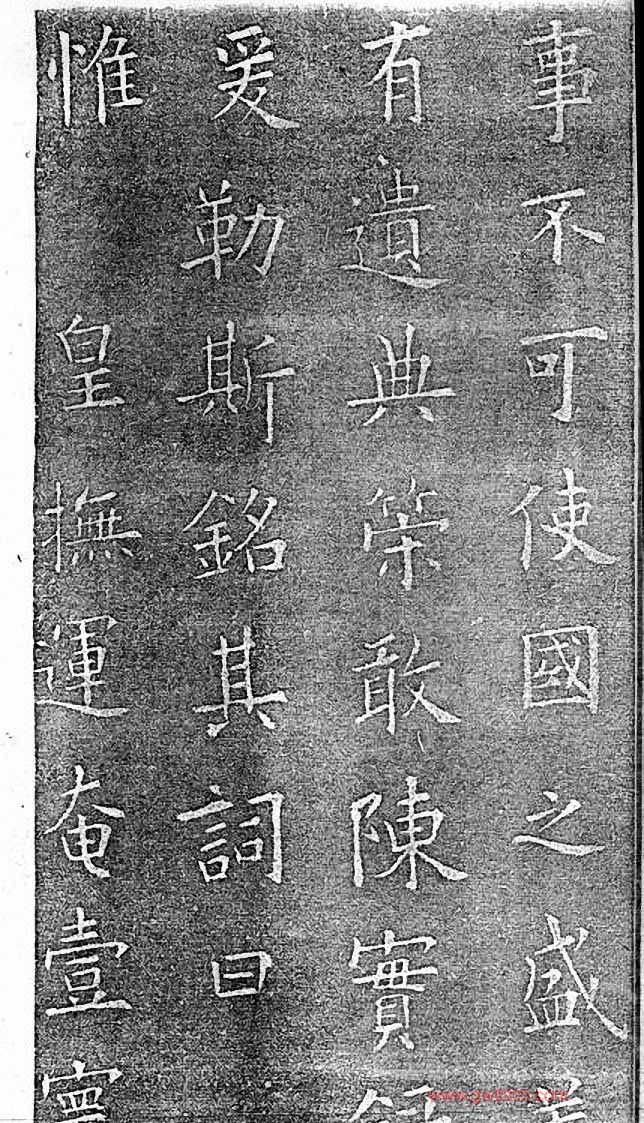 事不可使國之盛
有遺典策敢陳實
爰勒斯銘其詞曰
惟皇撫運奄壹寰